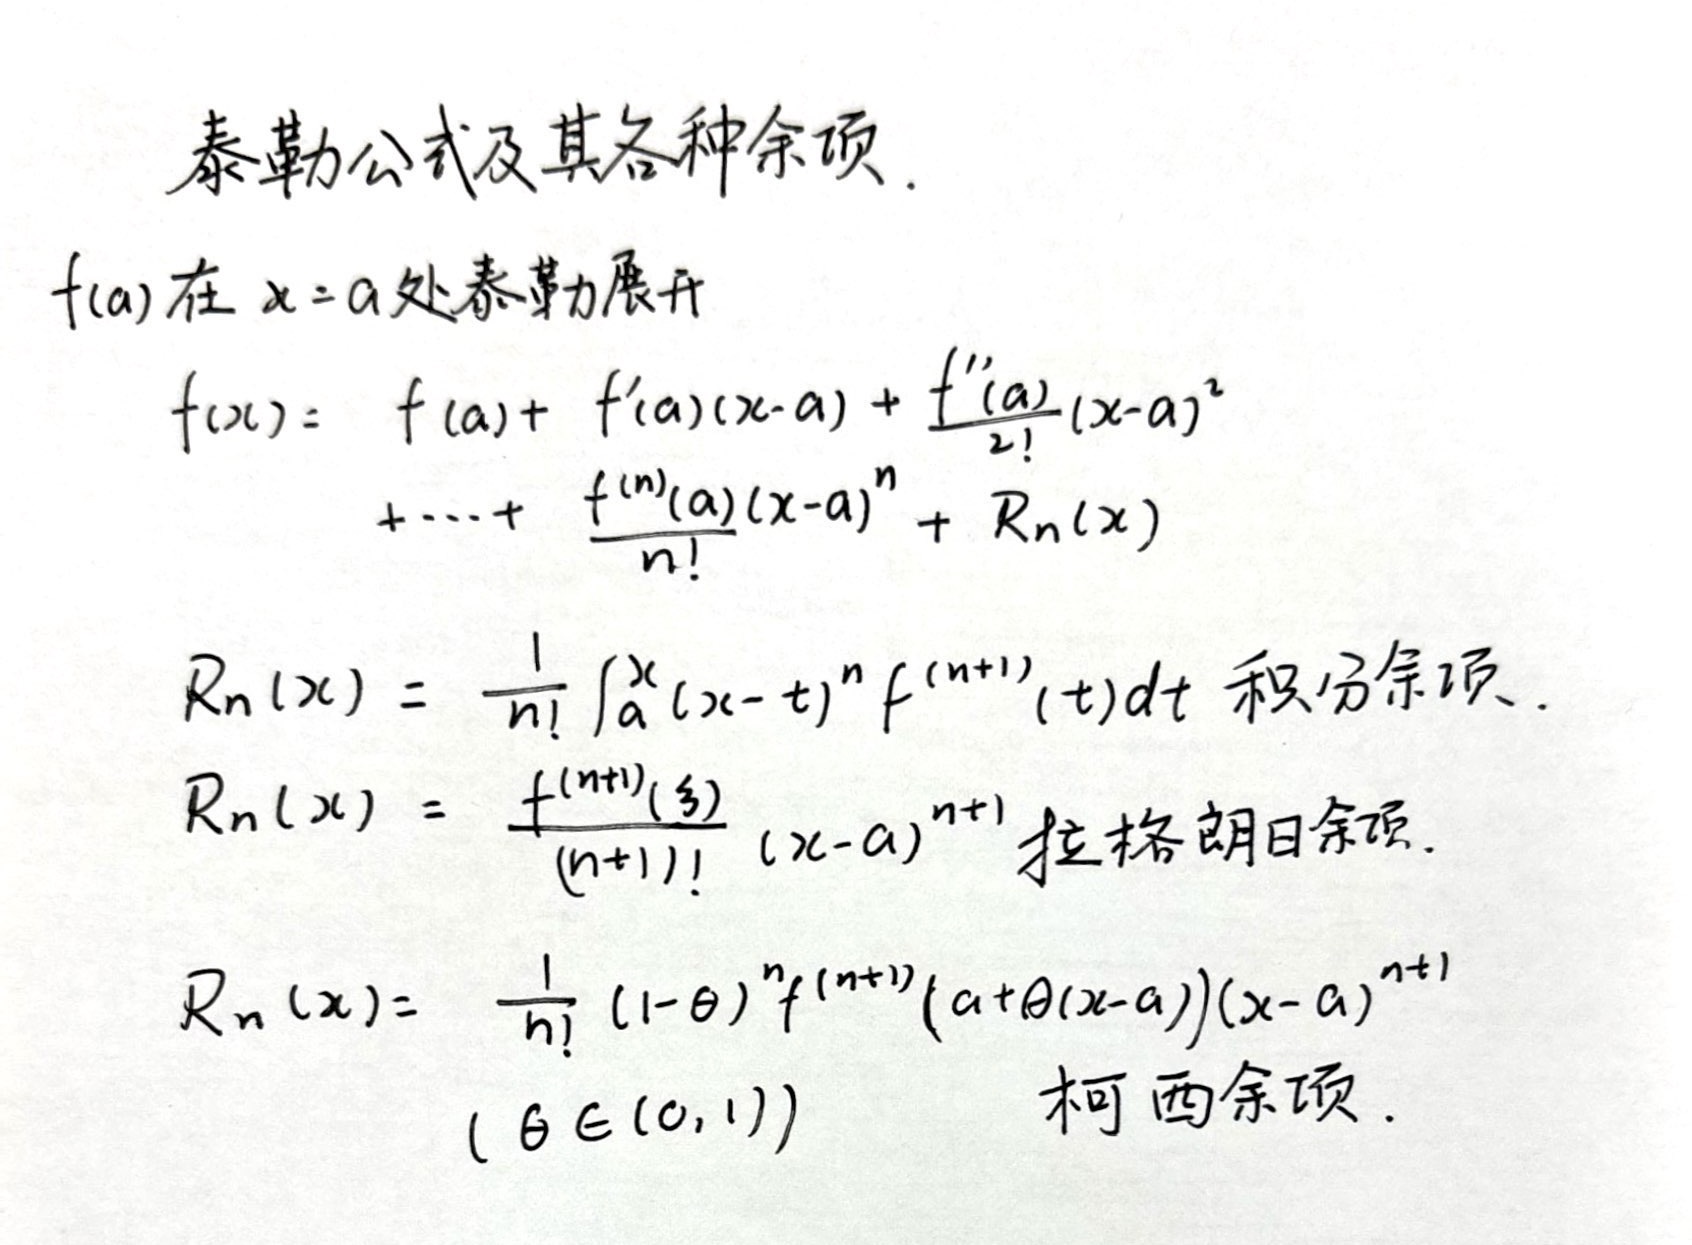 泰勒公式及其各种余项.
f(a)在 x=a处泰勒展开
f(x)= f(a)+ f'(a)(x-a) + \frac{f''(a)}{2!}(x-a)^2
+⋯+ \frac{f^{(n)}(a)}{n!}(x-a)^n + R_n(x)
R_n(x) = \frac{1}{n!} \int_a^x (x-t)^n f^{(n+1)}(t)dt 积分余项.
R_n(x) = \frac{f^{(n+1)}(ξ)}{(n+1)!} (x-a)^{n+1} 拉格朗日余项.
R_n(x)= \frac{1}{n!} (1-θ)^n f^{(n+1)}(a+θ(x-a))(x-a)^{n+1}
(θ∈(0,1)) 柯西余项.